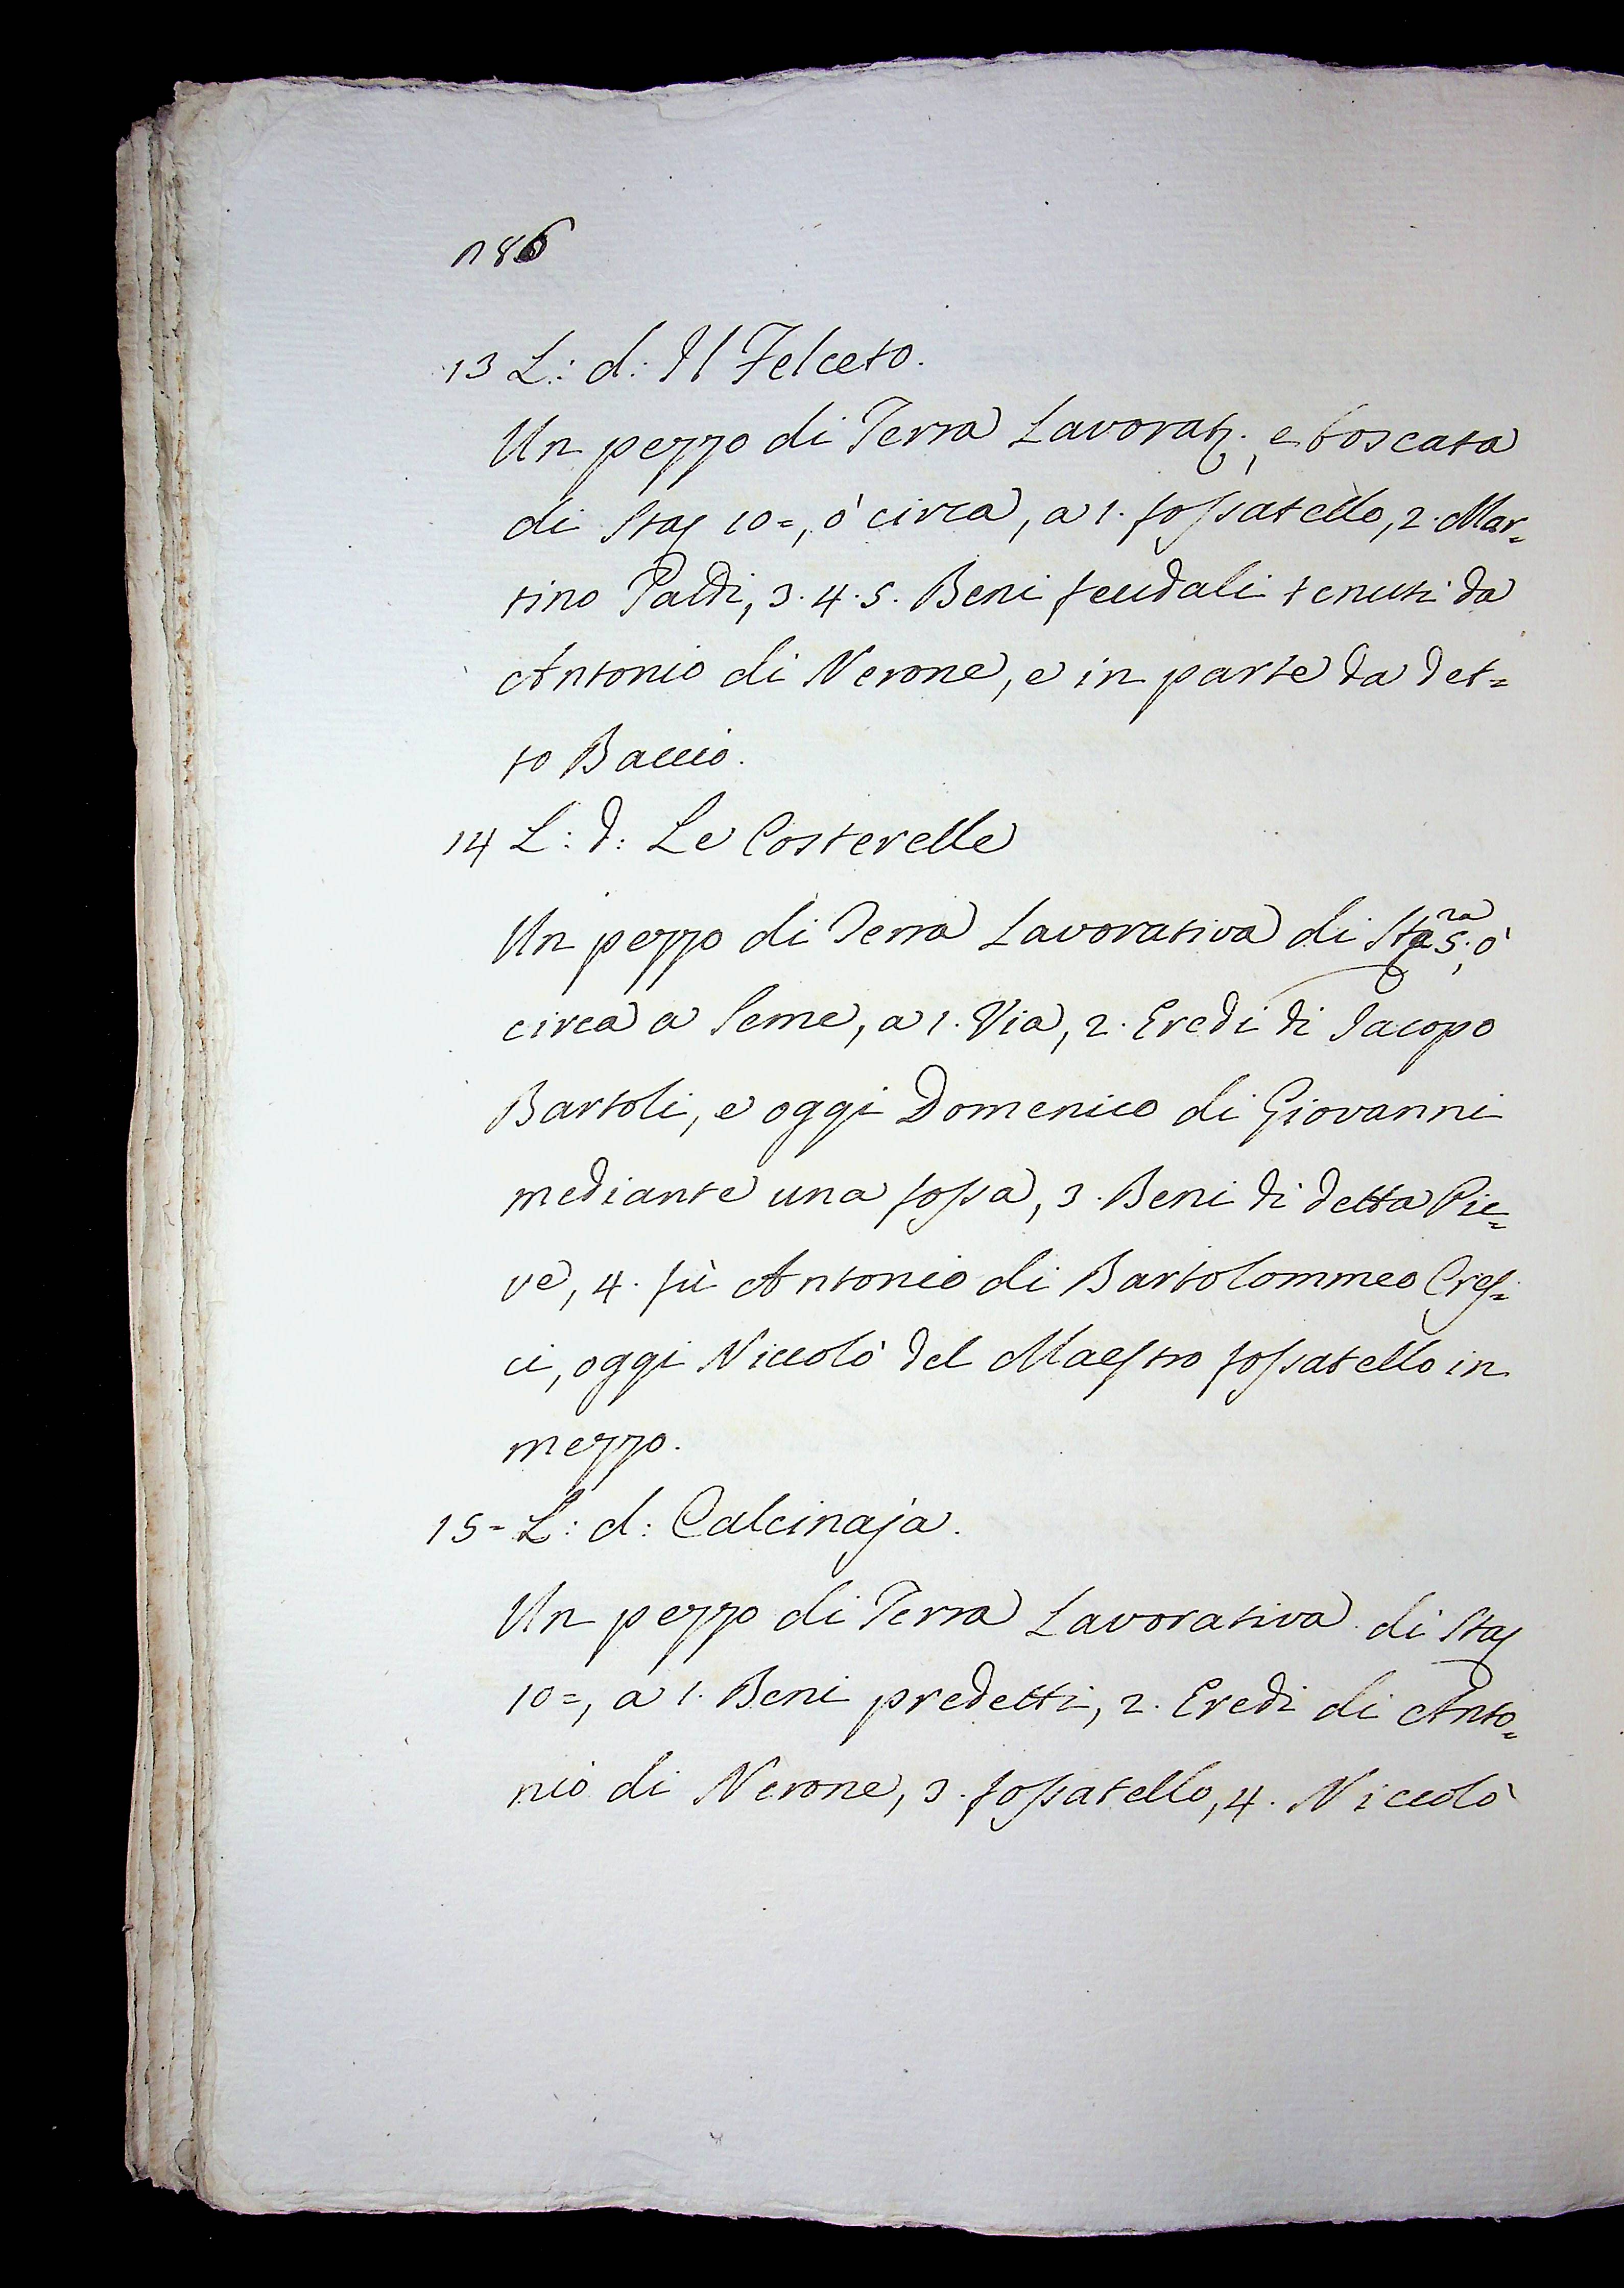 186
13 L: d: Il Felceto.
Un pezzo di Terra Lavorat., e boscata
di Sta 10=, ò circa, a 1. fossatello, 2. Mar=
tino Paldi, 3. 4. 5. Beni feudali tenuti da
Antonio di Nerone, e in parte da det=
to Baccio.
14 L: d: Le Costerelle
Un pezzo di Terra Lavorativa di Sta.ra 5., ò
circa a Seme, a 1. Via, 2. Eredi di Jacopo
Bartoli, e oggi Domenico di Giovanni
mediante una fossa, 3. Beni di detta Pie=
ve, 4. fù Antonio di Bartolommeo Cres=
ci, oggi Niccolò del Maestro fossatello in
mezzo.
15= L: d: Calcinaja.
Un pezzo di Terra Lavorativa di Sta
10=, a 1. Beni predetti, 2. Eredi di Anto=
nio di Nerone, 3. fossatello, 4. Niccolò